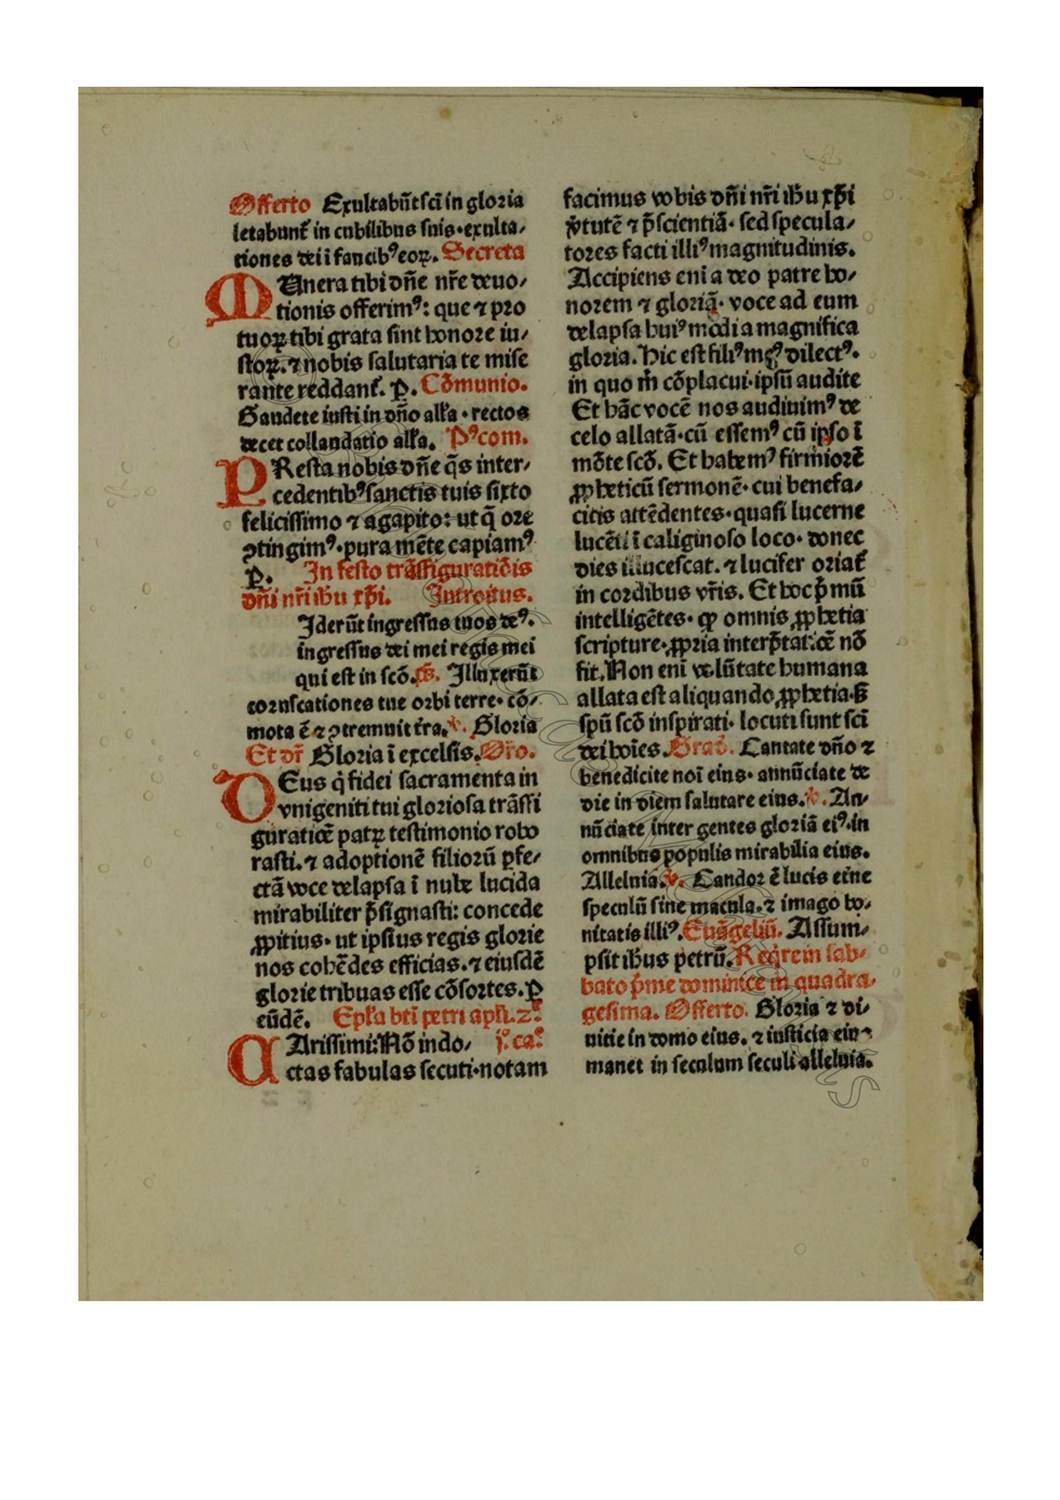 Offerto Exultabūt sc̄i in gloria
letabunt᷑ in cubilibus suis·exulta⸗
tiones dei ī faucibꝰ eoꝝ. Secreta
MUnera tibi dn̄e nr̄e deuo⸗
tionis offerimꝰ: que ⁊ pro
tuoꝝ tibi grata sint honore iu⸗
stoꝝ.⁊ nobis salutaria te mise
rante reddant᷑. ꝑ. Cōmunio.
Gaudete iusti in dn̄o alľa · rectos
decet collaudatio alľa. Pꝰcom.
PResta nobis dn̄e q̄s inter⸗
cedentibꝰ sanctis tuis sixto
felicissimo ⁊ agapito: ut q̄ ore
ꝯtingimꝰ·pura mēte capiamꝰ
ꝑ. In festo trāsfiguratiōis
dn̄i nr̄i ih̄u xp̄i. Introitus.
Iderūt ingressus tuos deꝰ.
ingressus dei mei regis mei
qui est in scō.p̄s. Illuxerūt
coruscationes tue orbi terre· cō⸗
mota ē ⁊ ꝯtremuit t̄ra.v. Gloria
Et dr̄ Gloria ī excelsis. Oro.
DEus q̇ fidei sacramenta in
vnigeniti tui gloriosa trāsfi
guratiōe patꝝ testimonio robo
rasti.⁊ adoptionē filiorū ꝑfe⸗
ctā voce delapsa ī nube lucida
mirabiliter p̄signasti: concede
ꝓpitius· ut ipsius regis glorie
nos cohēdes efficias.⁊ eiusdē
glorie tribuas esse cōsortes. ꝑ
eūdē. Epľa bt̄i petri apľi.2ᵉ
CArissimi: Nō indo⸗ jº.caº
ctas fabulas secuti·notam
facimus vobis dn̄i nr̄i ih̄u xp̄i
v̓tutē ⁊ p̄scientiā· sed specula⸗
tores facti illiꝰ magnitudinis.
Accipiens eni a deo patre ho⸗
norem ⁊ gloriā· voce ad eum
delapsa huiꝰmodi a magnifica
gloria. Hic est filiꝰ meꝰ dilectꝰ.
in quo m̄ cōplacui·ipsū audite
Et hāc vocē nos audiuimꝰ de
celo allatā·cū essemꝰ cū ipso ī
mōte scō. Et habemꝰ firmiorē
ꝓpheticū sermonē· cui benefa⸗
citis attēdentes·quasi lucerne
lucēti ī caliginoso loco· donec
dies illucescat. ⁊ lucifer oriat᷑
in cordibus vr̄is. Et hoc p̄mū
intelligētes· ꝙ omnis ꝓphetia
scripture·ꝓpria interp̄tatiōe nō
fit. Non eni volūtate humana
allata est aliquando ꝓphetia·ß
spū scō inspirati· locuti sunt sc̄i
dei hoīes. Grad. Cantate dn̄o ⁊
benedicite noī eius· annūciate de
die in diem salutare eius.v. An⸗
nūciate inter gentes gloriā eiꝰ.in
omnibus populis mirabilia eius.
Alleluia.v. Candor ē lucis eťne
speculū sine macula.⁊ imago bo⸗
nitatis illiꝰ. Euāgeliū. Assum⸗
psit ih̄us petrū. Req̇re in sab⸗
bato p̄me dominice in quadra⸗
gesima. Offerto. Gloria ⁊ di⸗
uitie in domo eius. ⁊ iusticia eius
manet in seculum seculi alleluia.